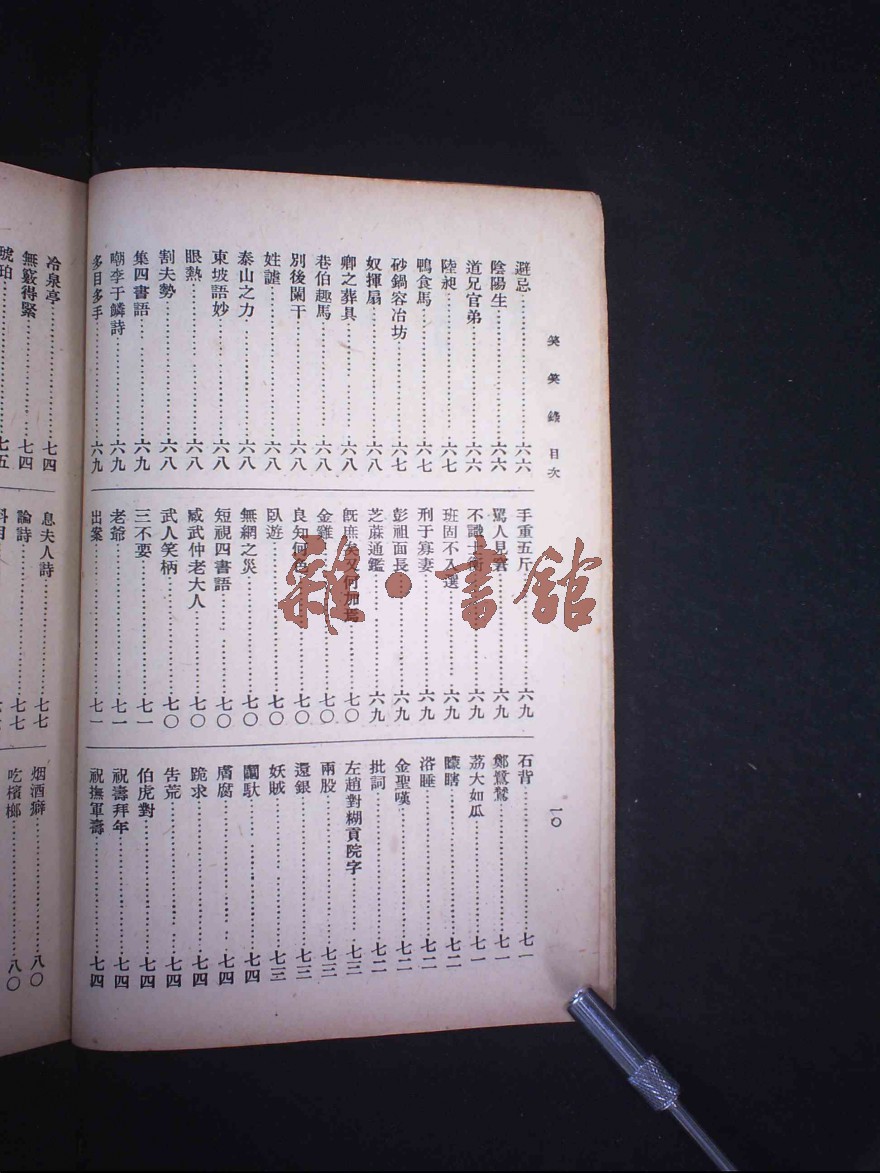 笑笑錄 目次
一〇
避忌……六六
陰陽生……六六
道兄官弟……六六
陸昶……六七
鴨食馬……六七
砂鍋容冶坊……六七
奴揮扇……六八
卿之葬具……六八
巷伯趣馬……六八
別後闌干……六八
姓謔……六八
泰山之力……六八
東坡語妙……六八
眼熱……六八
割夫勢……六八
集四書語……六九
嘲李于鱗詩……六九
多目多手……六九
手重五斤……六九
罵人見書……六九
不識士衡……六九
班固不入選……六九
刑于寡妻……六九
彭祖面長……六九
芝蔴通鑑……六九
旣庶矣又何加焉……七〇
金雞……七〇
良知何色……七〇
臥遊……七〇
無網之災……七〇
短視四書語……七〇
臧武仲老大人……七〇
武人笑柄……七〇
三不要……七一
老爺……七一
出案……七一
石背……七一
鄭鷺鷥……七一
荔大如瓜……七一
矇瞎……七二
洛睡……七二
金聖嘆……七二
批詞……七二
左趙對糊貢院字……七三
兩股……七三
還銀……七三
妖賊……七三
闖馱……七四
膺腐……七四
跪求……七四
告荒……七四
伯虎對……七四
祝壽拜年……七四
祝撫軍壽……七四
冷泉亭……七四
無竅得緊……七四
琥珀……七五
息夫人詩……七七
論詩……七七
科目
烟酒癖……八〇
吃檳榔……八〇
雜·書館